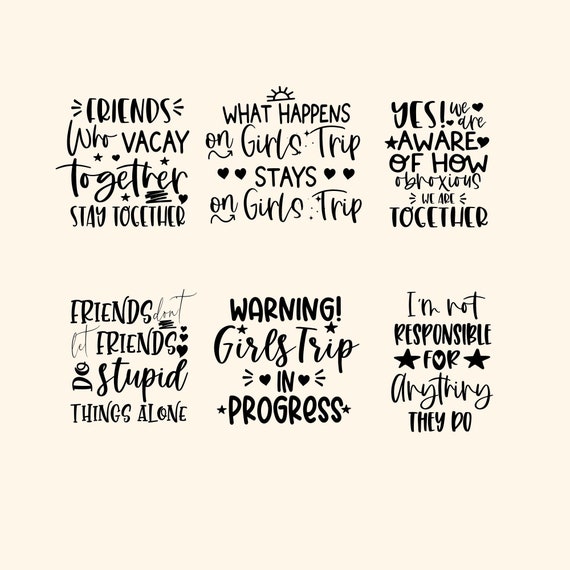 FRIENDS
Who VACAY
Together
STAY TOGETHER
WHAT HAPPENS
on Girls Trip
STAYS
on Girls Trip
YES! we are
AWARE
OF HOW
obnoxious
WE ARE
TOGETHER
FRIENDS don't
let FRIENDS
Do stupid
THINGS ALONE
WARNING!
Girls Trip
IN
PROGRESS
I'm not
RESPONSIBLE
FOR
Anything
THEY DO